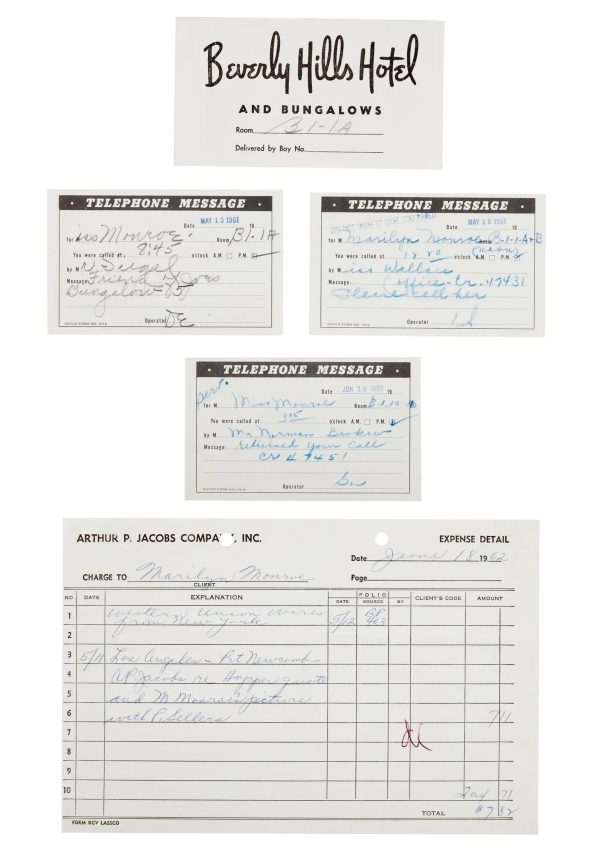 Beverly Hills Hotel
AND BUNGALOWS
Room B1-1A
Delivered by Boy No.
· TELEPHONE MESSAGE ·
Date MAY 13 1961 19
for M iss Monroe Room B1-1A
You were called at 9:45 o'clock A.M. P.M.
by M r Siegel
Message: Friend of Joes
Bungalow 15
Operator DE
KAYCO FORM NO. 1014
· TELEPHONE MESSAGE ·
DID NOT WISH TO HAVE YOU PAGED
Date MAY 16 1961 19
for M arilyn Monroe Room B-1-1A+B
You were called at 12:00 (noon) o'clock A.M. P.M.
by M iss Wallace
Message: Office Cr. 47431
Please call her
Operator
KAYCO FORM NO. 1014
· TELEPHONE MESSAGE ·
Date JUN 13 1961 19
for M Miss Monroe Room B-1-1A-B
You were called at 315 o'clock A.M. P.M.
by M Mr Norman Brokaw
Message: returned your call
CR 47451
Operator
KAYCO FORM NO. 1014
ARTHUR P. JACOBS COMPANY, INC. EXPENSE DETAIL
Date June 18 1962
CHARGE TO Marilyn Monroe Page
CLIENT
NO. DATE EXPLANATION FOLIO DATE SOURCE BY CLIENT'S CODE AMOUNT
1 Western Union Wires 5/12 BP
2 from New York 403
3 5/11 Los Angeles - Pat Newcomb -
4 AP Jacobs re Hopper quote
5 and M Monroe's picture
6 with P. Sellers 711
7
8
9
10 Tax 71
TOTAL $7.82
FORM RCV LASSCO